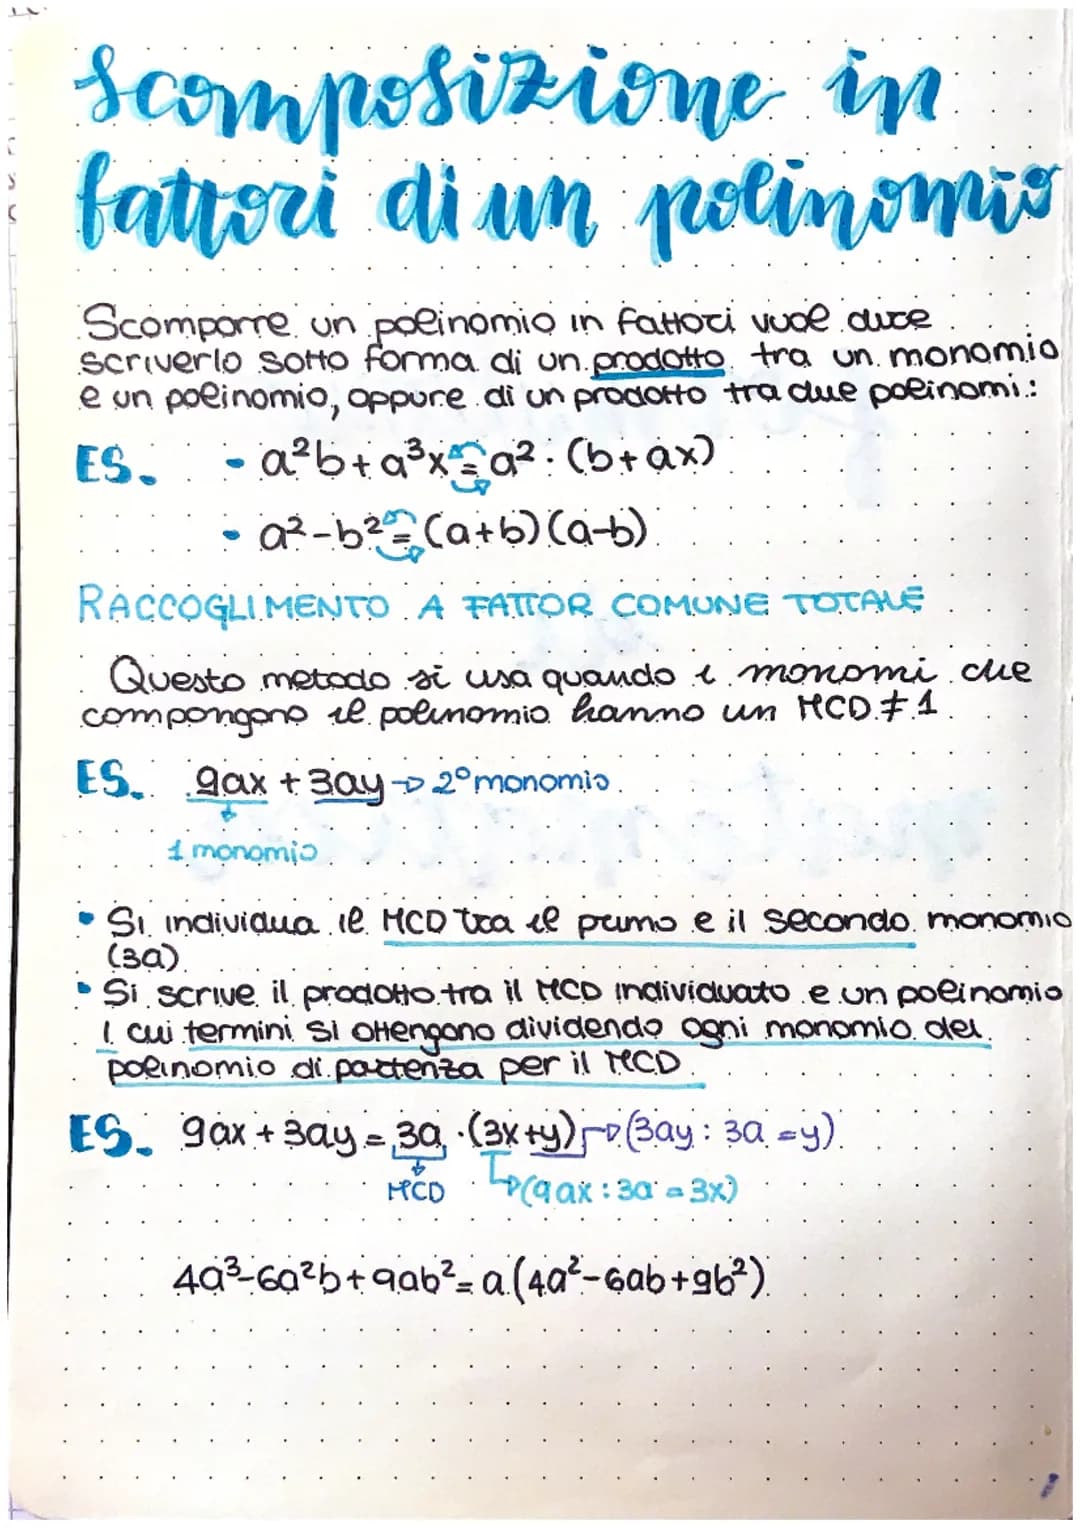 Scomposizione in
fattori di un polinomio
Scomporre un polinomio in fattori vuol dire
scriverlo sotto forma di un prodotto tra un monomio
e un polinomio, oppure di un prodotto tra due polinomi:
ES. • a²b + a³x = a² · (b + ax)
• a² - b² = (a+b)(a-b)
RACCOGLIMENTO A FATTOR COMUNE TOTALE
Questo metodo si usa quando i monomi che
compongono il polinomio hanno un MCD ≠ 1
ES. 9ax + 3ay → 2° monomio
1 monomio
• Si individua il MCD tra il primo e il secondo monomio
(3a)
• Si scrive il prodotto tra il MCD individuato e un polinomio
i cui termini si ottengono dividendo ogni monomio del
polinomio di partenza per il MCD
ES. 9ax + 3ay = 3a · (3x+y) → (3ay : 3a = y)
MCD → (9ax : 3a = 3x)
4a³ - 6a²b + 9ab² = a (4a² - 6ab + 9b²)